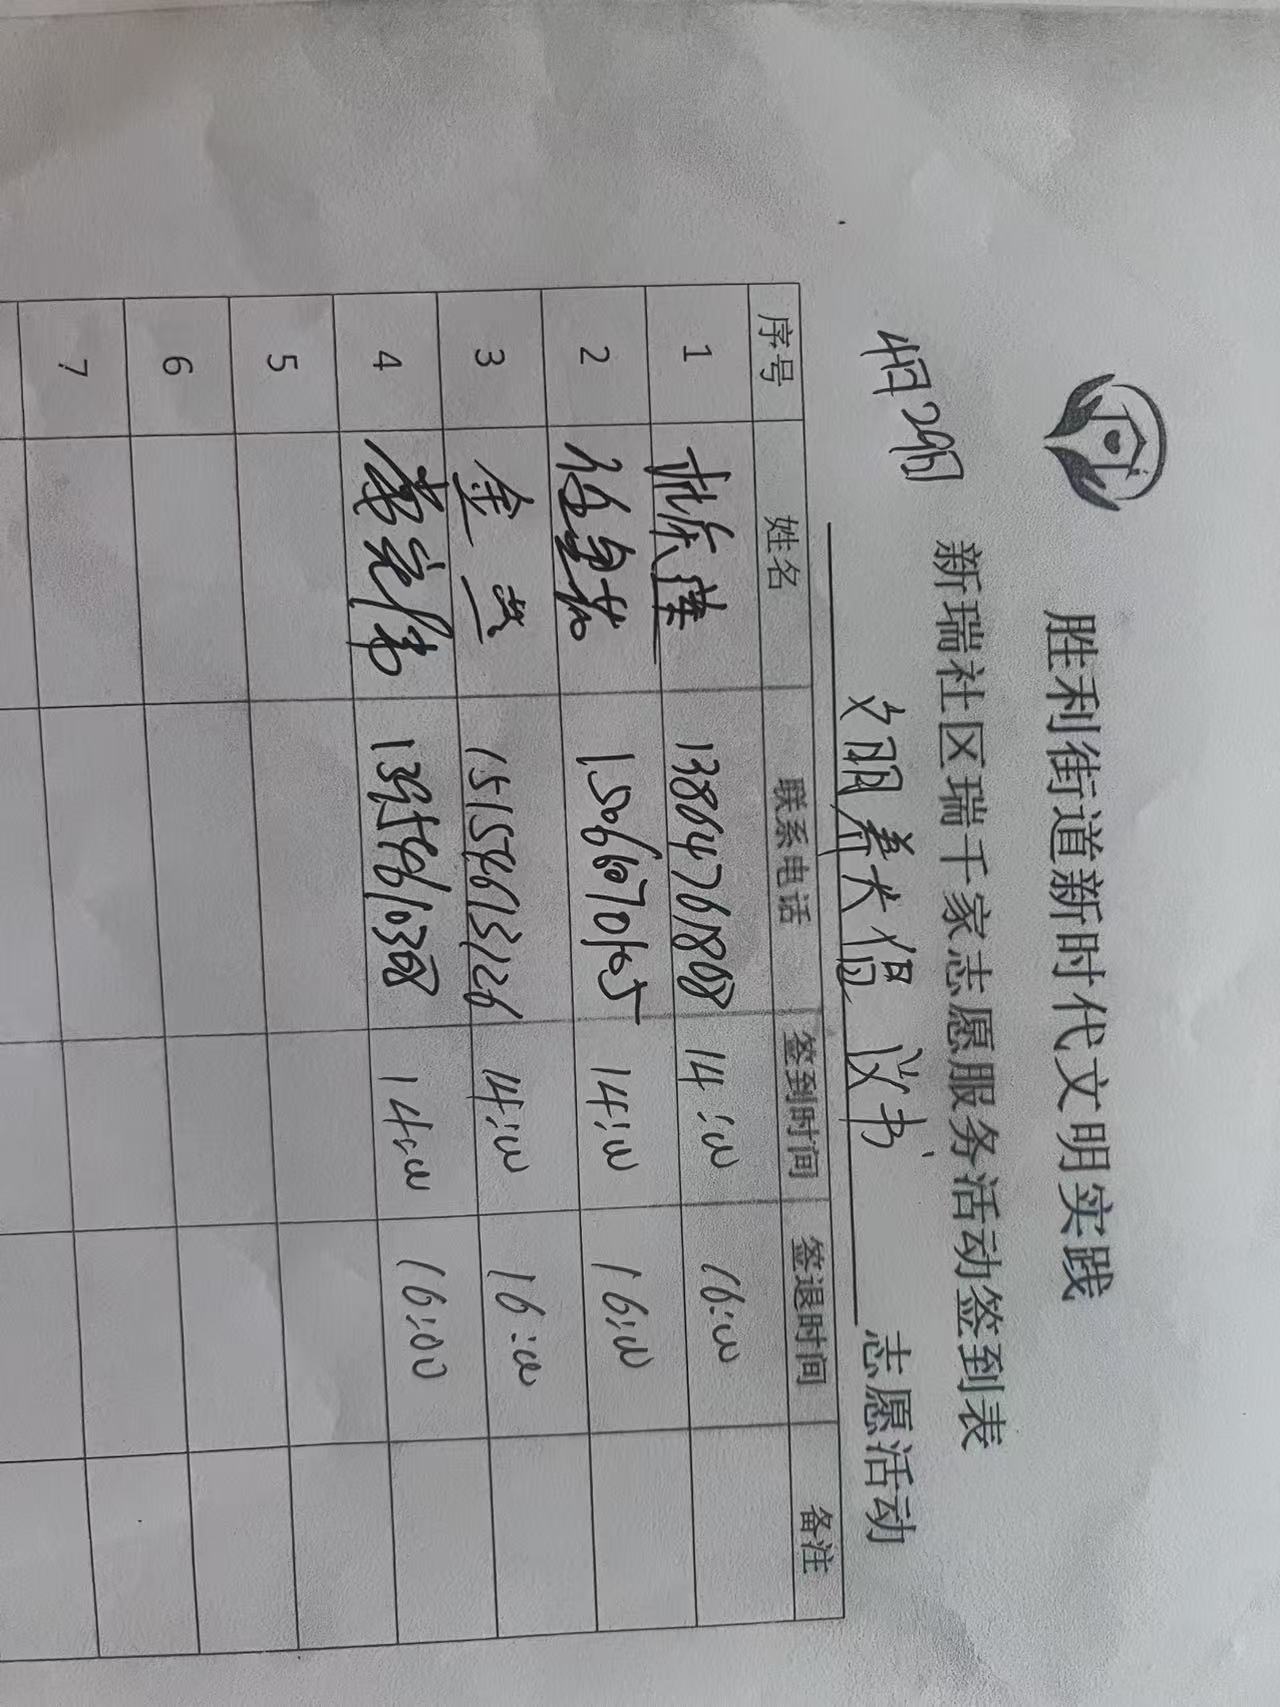 胜利街道新时代文明实践
新瑞社区瑞千家志愿服务活动签到表
4月29日 文明养犬倡议书 志愿活动
序号 姓名 联系电话 签到时间 签退时间 备注
1 13864761808 14:00 16:00
2 15066070165 14:00 16:00
3 金 15154613126 14:00 16:00
4 13954610368 14:00 16:00
5
6
7